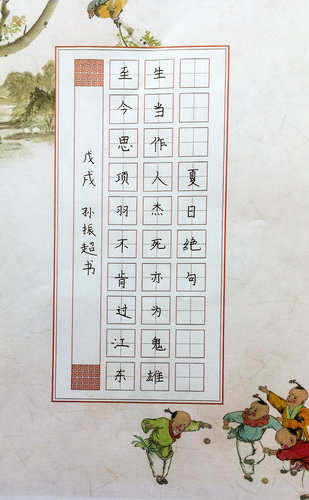 夏日绝句
生当作人杰死亦为鬼雄
至今思项羽不肯过江东
戊戌 孙振超书